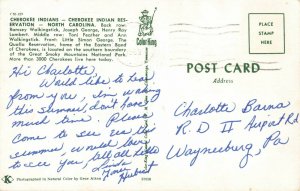 C-50-227
CHEROKEE INDIANS — CHEROKEE INDIAN RES-
ERVATION — NORTH CAROLINA. Back row:
Ramsey Walkingstick, Joseph George, Henry Roy
Lambert. Middle row: Toni Feather and Ann
Walkingstick. Front: Little Simon George. The
Qualla Reservation, home of the Eastern Band
of Cherokees, is located on the southern boundary
of the Great Smoky Mountains National Park.
More than 3000 Cherokees live here today.
Hi Charlotte,
Would like to hear
from you, I'm working
this summer, don't have
much time. Please
come to see us this
summer, would love
to see you, tell all hello
Linda
Hubert
K Photographed in Natural Color by Gene Aiken
ColorKing
PLACE
STAMP
HERE
POST CARD
Address
Charlotte Barna
R. D II Airport Rd
Waynesburg, Pa